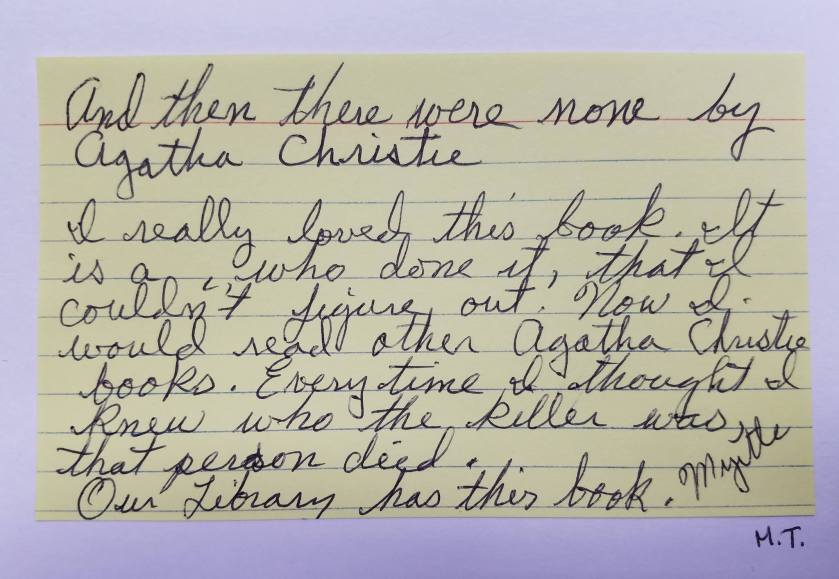 And then there were none by
Agatha Christie
I really loved this book. It
is a ,, who done it, that I
couldn't figure out. Now I.
would read other Agatha Christie
books. Every time I thought I
knew who the killer was,
that person died.
Our Library has this book. Myrtle
M.T.